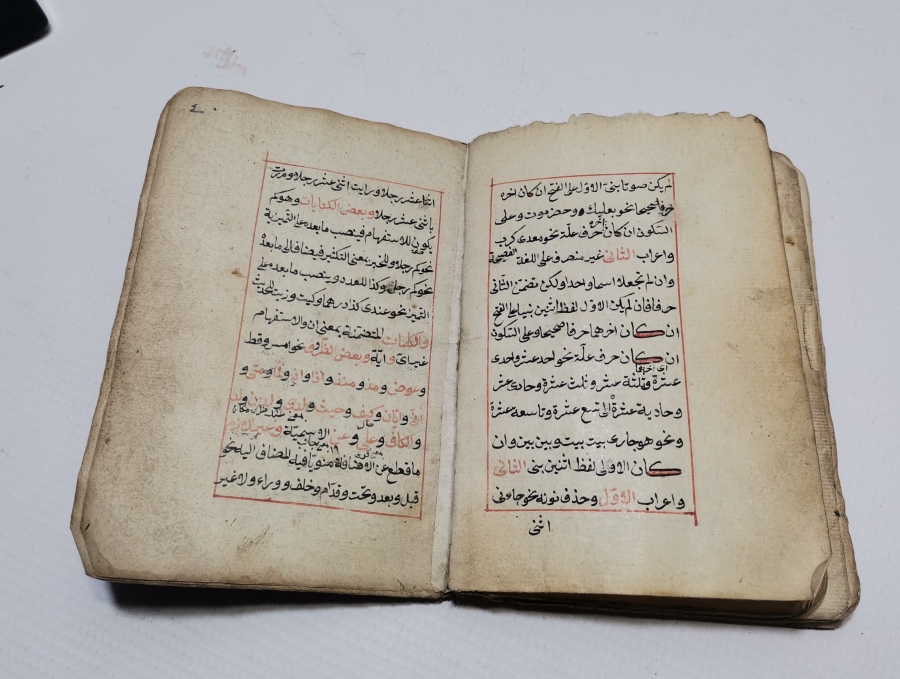 لم يكن صوتا بنى الاول على الفتح ان كان اخره
حرفا صحيحا نحو بعلبك وحضرموت وعلى
السكون ان كان اخره حرف علة نحو معدى كرب
واعراب الثانى غير منصرف على اللغة الفصيحة
وان لم تجعلا اسما واحدا ولكن تضمن الثانى
حرفا فان لم يكن الاول لفظ اثنين بنيا على الفتح
ان كان اخرهما حرفا صحيحا وعلى السكون
ان كان حرف علة نحو احد عشر واحدى
اى اخرهما
عشرة وثلثة عشر وثلث عشرة وحادى عشر
وحادية عشرة الى تسع عشرة وتاسعة عشرة
ونحو هو جارى بيت بيت وبين بين وان
كان الاول لفظ اثنين بنى الثانى
واعراب الاول وحذف نونه نحو جاءنى
اثنى
٤٠
اثنا عشر رجلا ورايت اثنى عشر رجلا ومررت
باثنى عشر رجلا وبعض الكنايات وهو كم
يكون للاستفهام فينصب ما بعده على التميزية
نحو كم رجلا وللخبر بمعنى التكثير فيضاف الى ما بعده
نحو كم رجل وكذا للعدد وينصب ما بعده على
التميز نحو عندى كذا درهما وكيت وزيت للحديث
والكلمات المتضمنة بمعنى ان والاستفهام
غير اى واية وبعض الظروف نحو امس وقط
وعوض ومذ ومنذ واذا واذ و ومتى و
وايان وكيف وحيث ولدى ولدن
والكاف وعلى وعن الاسمية
ما قطع عن الاضافة منويا فيه المضاف اليه نحو
قبل وبعد وتحت وقدام وخلف ووراء ولا غير